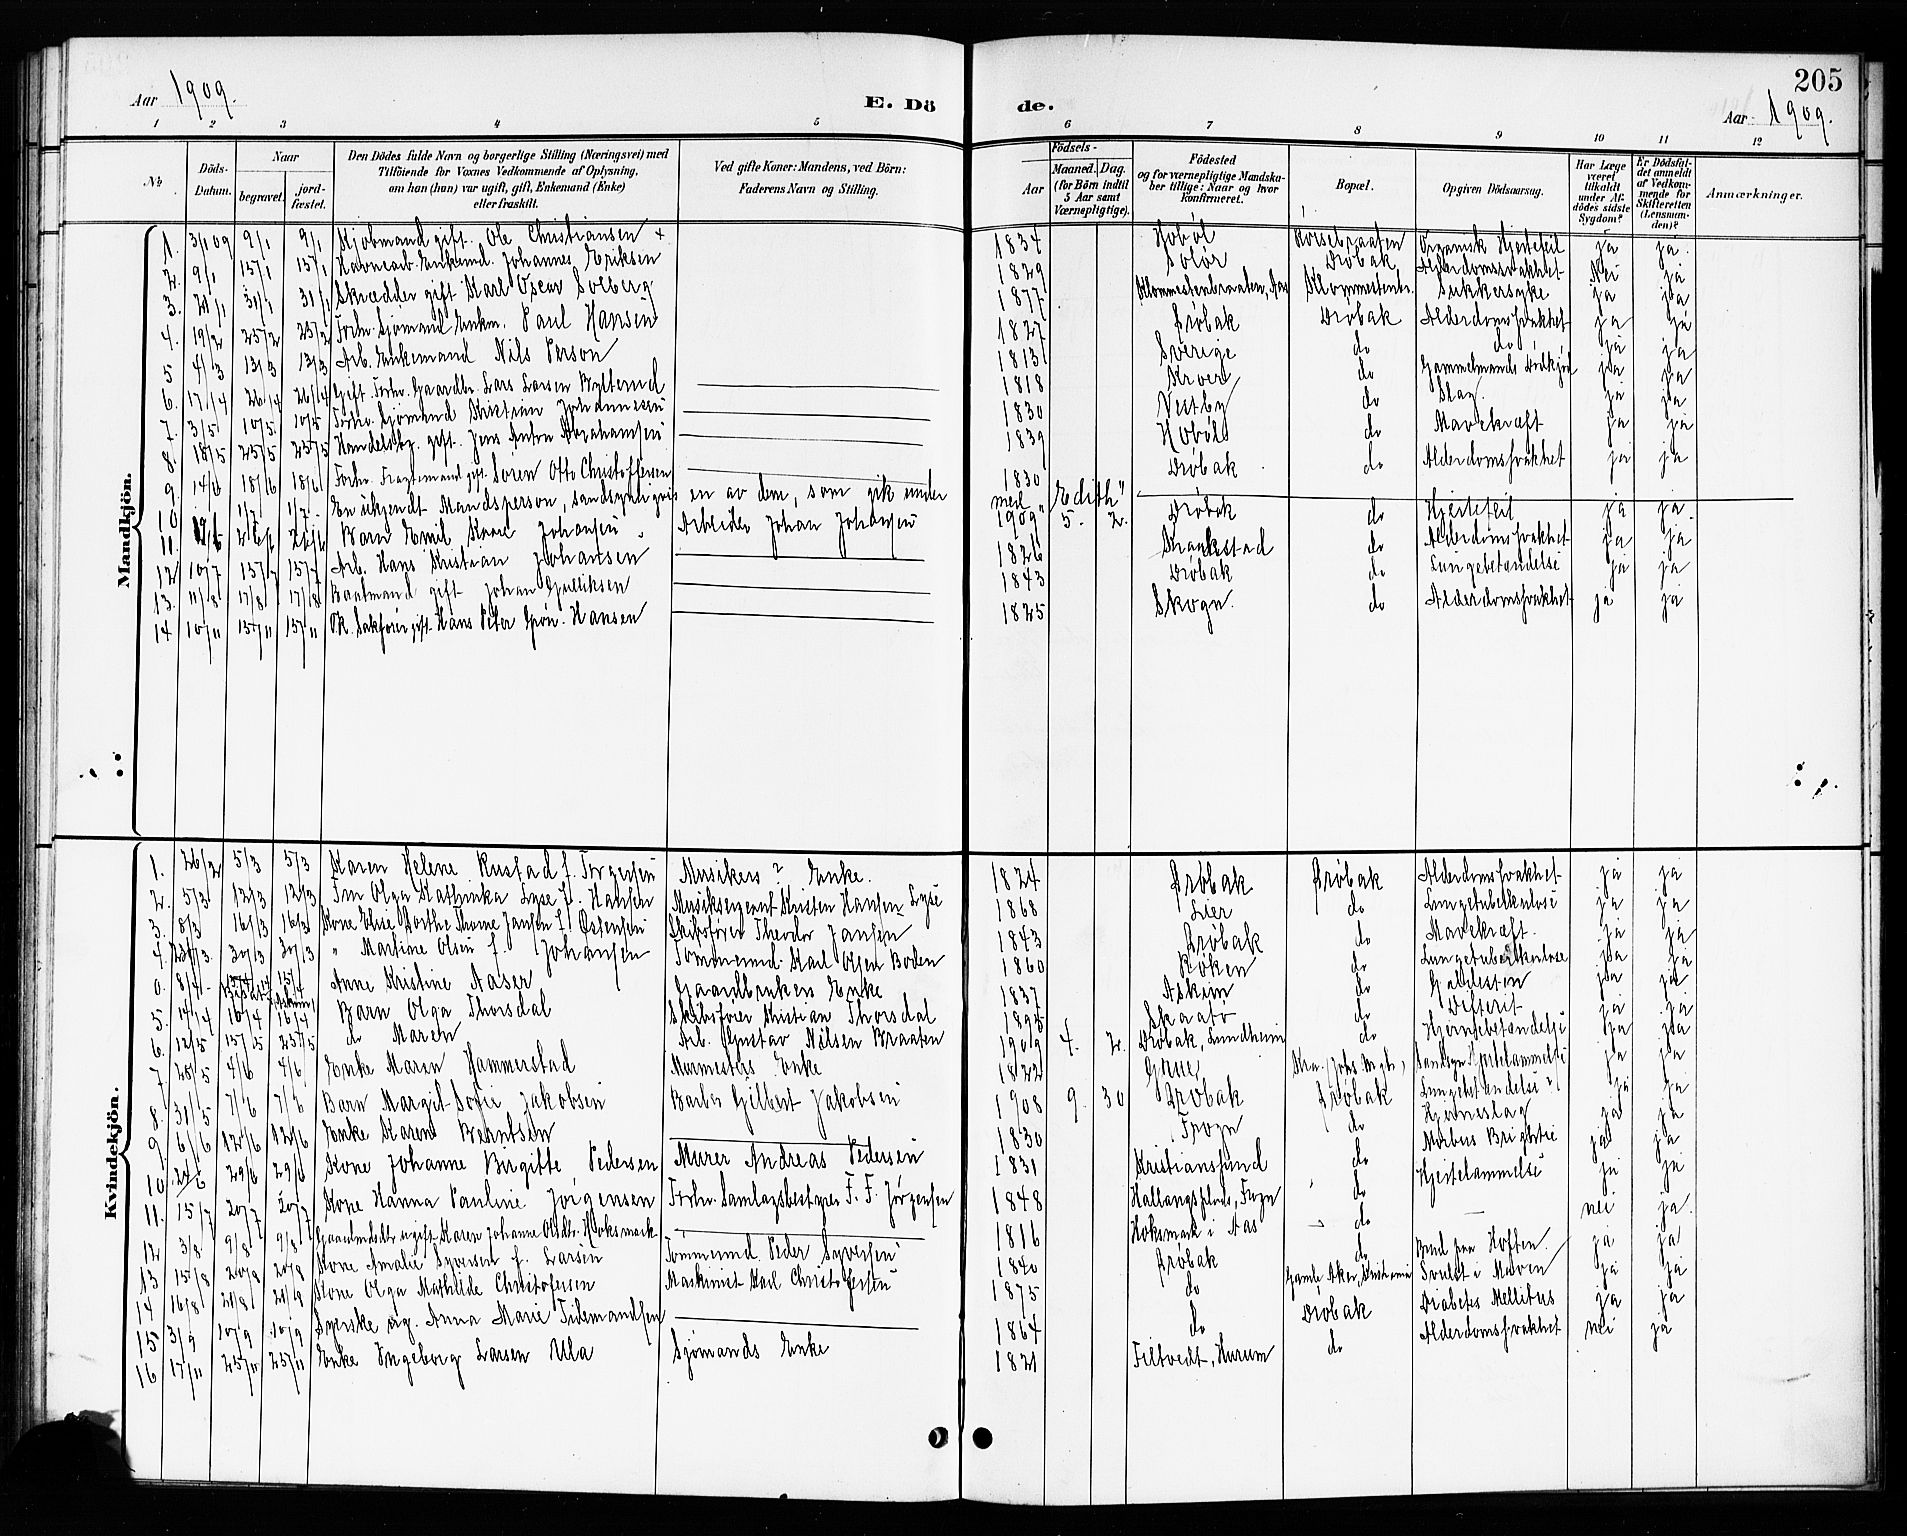 205
Aar 1909. E. Dö
de. Aar 1909.
1 2 3 4 5
6 7 8 9 10 11 12
No. Döds-Datum. Naar begravet. jord-fæstet. Den Dödes fulde Navn og borgerlige Stilling (Næringsvei) med Tilföiende for Voxnes Vedkommende af Oplysning, om han (hun) var ugift, gift, Enkemand (Enke) eller fraskilt. Ved gifte Koner: Mandens, ved Börn: Faderens Navn og Stilling.
Födsels- Aar Maaned. Dag. (for Börn indtil 5 Aar samt Værnepligtige). Födested og for værnepligtige Mandskaber tillige: Naar og hvor Konfirmeret. Bopæl. Opgiven Dödsaarsag. Har Læge været tilkaldt under Afdödes sidste Sygdom? Er Dödsfaldet anmeldt af Vedkommende for Skifteretten (Lensmanden)? Anmærkninger.
Mandkjön.
1. 3/1 09 9/1 9/1 Kjøbmand gift. Ole Christiansen + 1834 Hobøl Korsebraaten Organisk Hjertefeil ja ja.
2. 9/1 15/1 15/1 Havnearb. Enkemd. Johannes Eriksen 1829 Solør Drøbak Alderdomssvakhet Nei ja
3. 31/1 31/1 Skrædder gift Karl Oscar Solberg 1877 Klommestenbraaten, Aas Klommestenbr. Sukkersyke ja ja
4. 19/2 25/2 25/2 Forhv. Sjømand Enkm. Paul Hansen 1827 Drøbak Drøbak Alderdomssvakhet ja ja
5 4/3 13/3 13/3 Arb. Enkemand Nils Person 1813 Sverige do do ja ja
6. 17/4 26/4 26/4 Gift. Forhv. Gaardbr. Lars Larsen 1818 Kroer do Gammelmands ja ja
7. 3/5 10/5 10/5 Forhv. Sjømand Kristian Johannesen 1830 Vestby do Slag. ja ja
8. 18/5 25/5 25/5 Handelsbg. gift. Jens Anton Abrahamsen 1839 Hobøl do Mavekræft ja ja
9. 14/6 18/6 18/6 Forhv. Fragtemand gift. Søren Otto Christoffersen 1830 Drøbak do Alderdomssvakhet ja ja
10 1/7 1/7 En ukjendt Mandsperson, sandsynligvis en av dem, som gik under med "Edith"
11. 26/6 26/6 Barn Emil Kaare Johansen Arbeider Johan Johansen 1909 5. 2. Drøbak do Hjertefeil ja ja.
12 10/7 15/7 15/7 Arb. Hans Kristian Johansen 1826 do Alderdomssvakhet ja ja
13. 11/8 17/8 17/8 Baatmand gift Johan Gulliksen 1843 Drøbak do Lungebetændelse ja ja
14 10/11 15/11 15/11 Ok. Sakfører gift. Hans Peter Grøn-Hansen 1825 Skogn. do Alderdomssvakhet ja ja
Kvindekjön.
1. 26/2 5/3 5/3 Karen Helene Rustad f. Torgersen Musikers ? Enke. 1824 Drøbak Drøbak Alderdomssvakhet ja ja
2. 5/3 12/3 12/3 Fru Olga Kathinka Lyse f. Hansen Musiksergent Kristen Hansen Lyse 1868 Lier do Lungetuberkulose ja ja
3. 8/3 16/3 16/3 Kone Else Dorthe Thorine Jansen f. Østensen Skibsfører Theodor Jansen 1843 Drøbak do Mavekræft. ja ja
4. 30/3 30/3 " Martine Olsen f. Johansen Tømmermd. Karl Olsen Boden 1860 Røken do Lungetuberkulose ja ja
0. 8/4 15/4 15/4 Anne Kristine Aaser Gaardbrukers Enke 1837 Askim do Galdesten ja ja
5. 14/4 16/4 16/4 Barn Olga Thorsdal Skibsfører Kristian Thorsdal 1895 Skaatø do Difterit ja ja
6. 12/5 15/5 25/5 do Maren Arb. Gustav Nilsen Braaten 1909 4. 2. Drøbak, Lundheim do Hjernebetændelse ja ja
7 28/5 4/6 4/6 Enke Maren Hammerstad Murmesters Enke 1822 Grue Sandsyn. Hjertelammelse ja ja
8. 31/5 7/6 7/6 Barn Margit Sofie Jakobsen Barber Gilbert Jakobsen 1908 9. 30 Drøbak Drøbak Lungebetændelse ja ja
9 6/6 12/6 12/6 Enke Karen Berntsen 1830 Frogn do Hjerneslag ja ja
10 24/6 29/6 29/6 Kone Johanne Birgitte Pedersen Murer Andreas Pedersen 1831 Kristianssund do Morbus Brightii ja ja
11. 15/7 20/7 20/7 Kone Hanna Pauline Jørgensen Forhv. Samlagsbestyrer F. F. Jørgensen 1848 Hallangsplads, Frogn do Hjertelammelse ja ja
12 3/8 9/8 9/8 Gaardmdsdtr. ugift Karen Johanne Olsdtr. Hoksmark 1816 Hoksmark i Aas do nei ja.
13 15/8 20/8 20/8 Kone Amalie Syversen f. Larsen Tømmermd. Peder Syversen 1840 Drøbak do Brud paa Hoften. ja ja
14 16/8 21/8 21/8 Kone Olga Mathilde Christofersen Maskinist Karl Christofersen 1875 do Gamle Aker, Kristiania Svulst i Maven ja ja
15 3/9 10/9 10/9 Syerske ug. Anna Marie Tidemandsen 1864 do Drøbak Diabetes Mellitus ja ja
16 17/11 25/11 25/11 Enke Ingeborg Larsen Ula Sjømands Enke 1821 Filtvedt, Hurum do Alderdomssvakhet nei ja